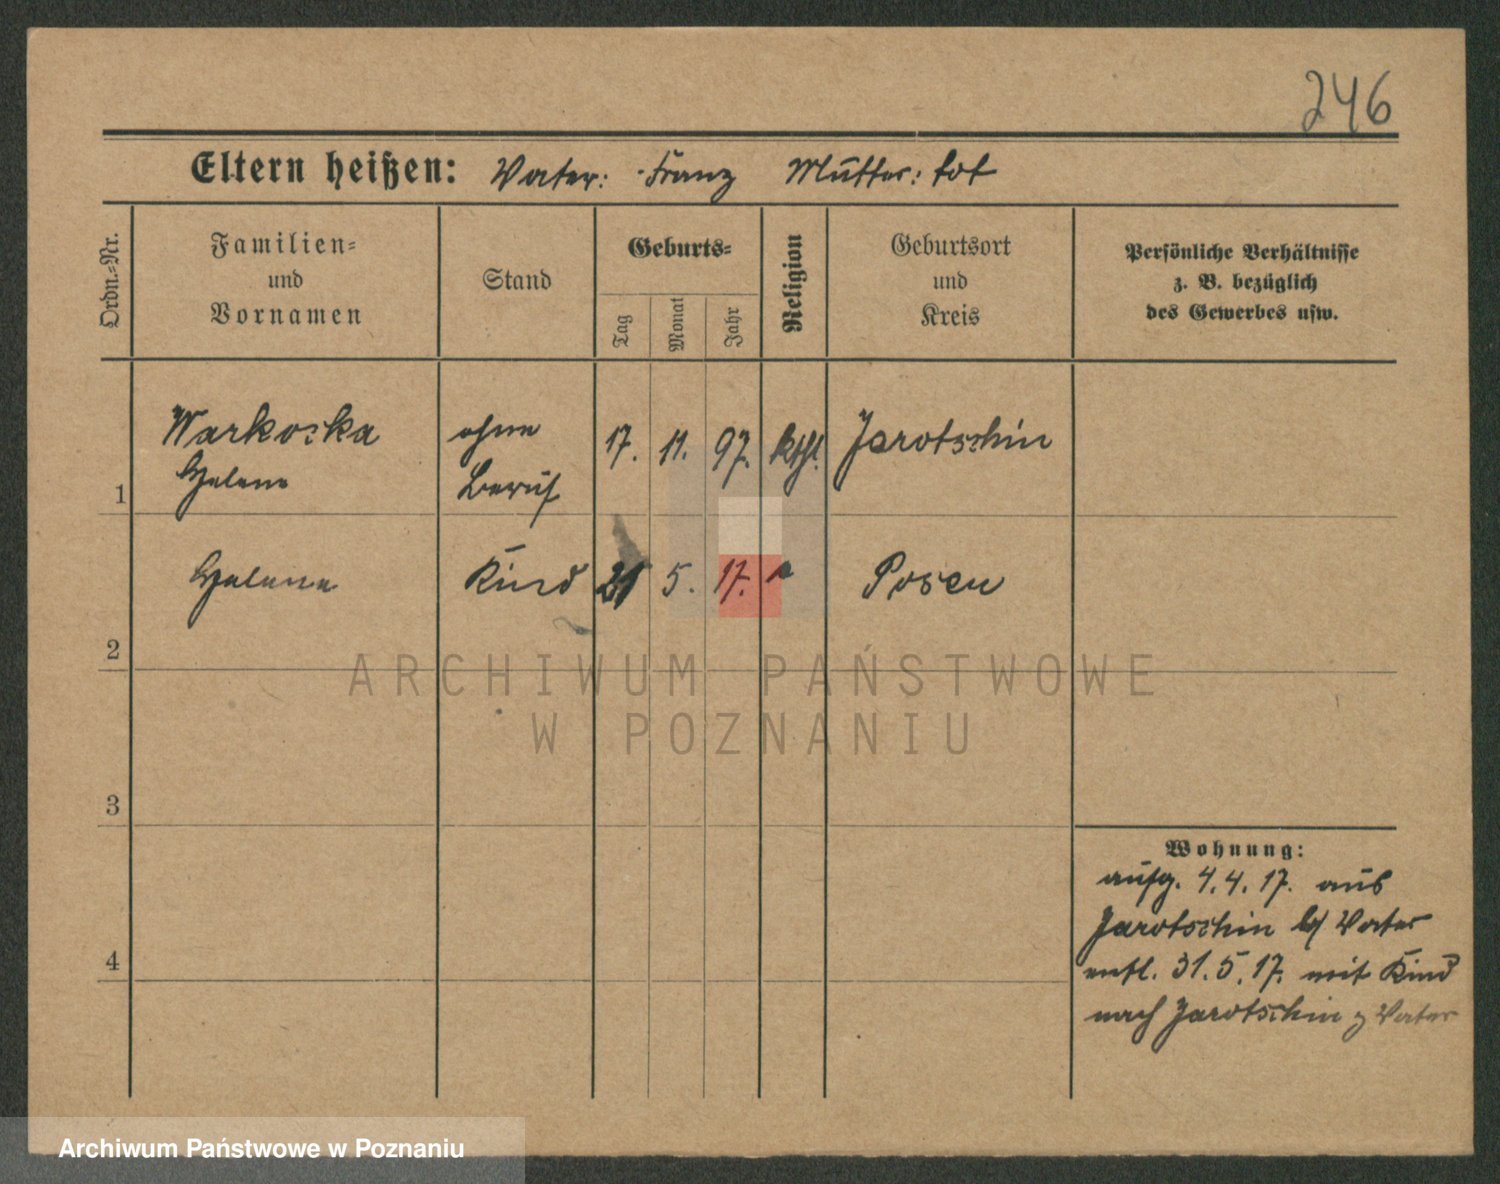 246
Eltern heißen: Vater: Franz Mutter: tot
Ordn.=Nr.
Familien=
und
Vornamen
Stand
Geburts=
Tag
Monat
Jahr
Religion
Geburtsort
und
Kreis
Persönliche Verhältnisse
z. B. bezüglich
des Gewerbes usw.
1
Warkocka
Helene
ohne
Beruf
17. 11. 97. kthl. Jarotschin
2
Helene Kind 21 5. 17. " Posen
3
4
Wohnung:
aufg. 4.4.17. aus
Jarotschin b/ Vater
entl. 31.5.17. mit Kind
nach Jarotschin z Vater
ARCHIWUM PAŃSTWOWE
W POZNANIU
Archiwum Państwowe w Poznaniu